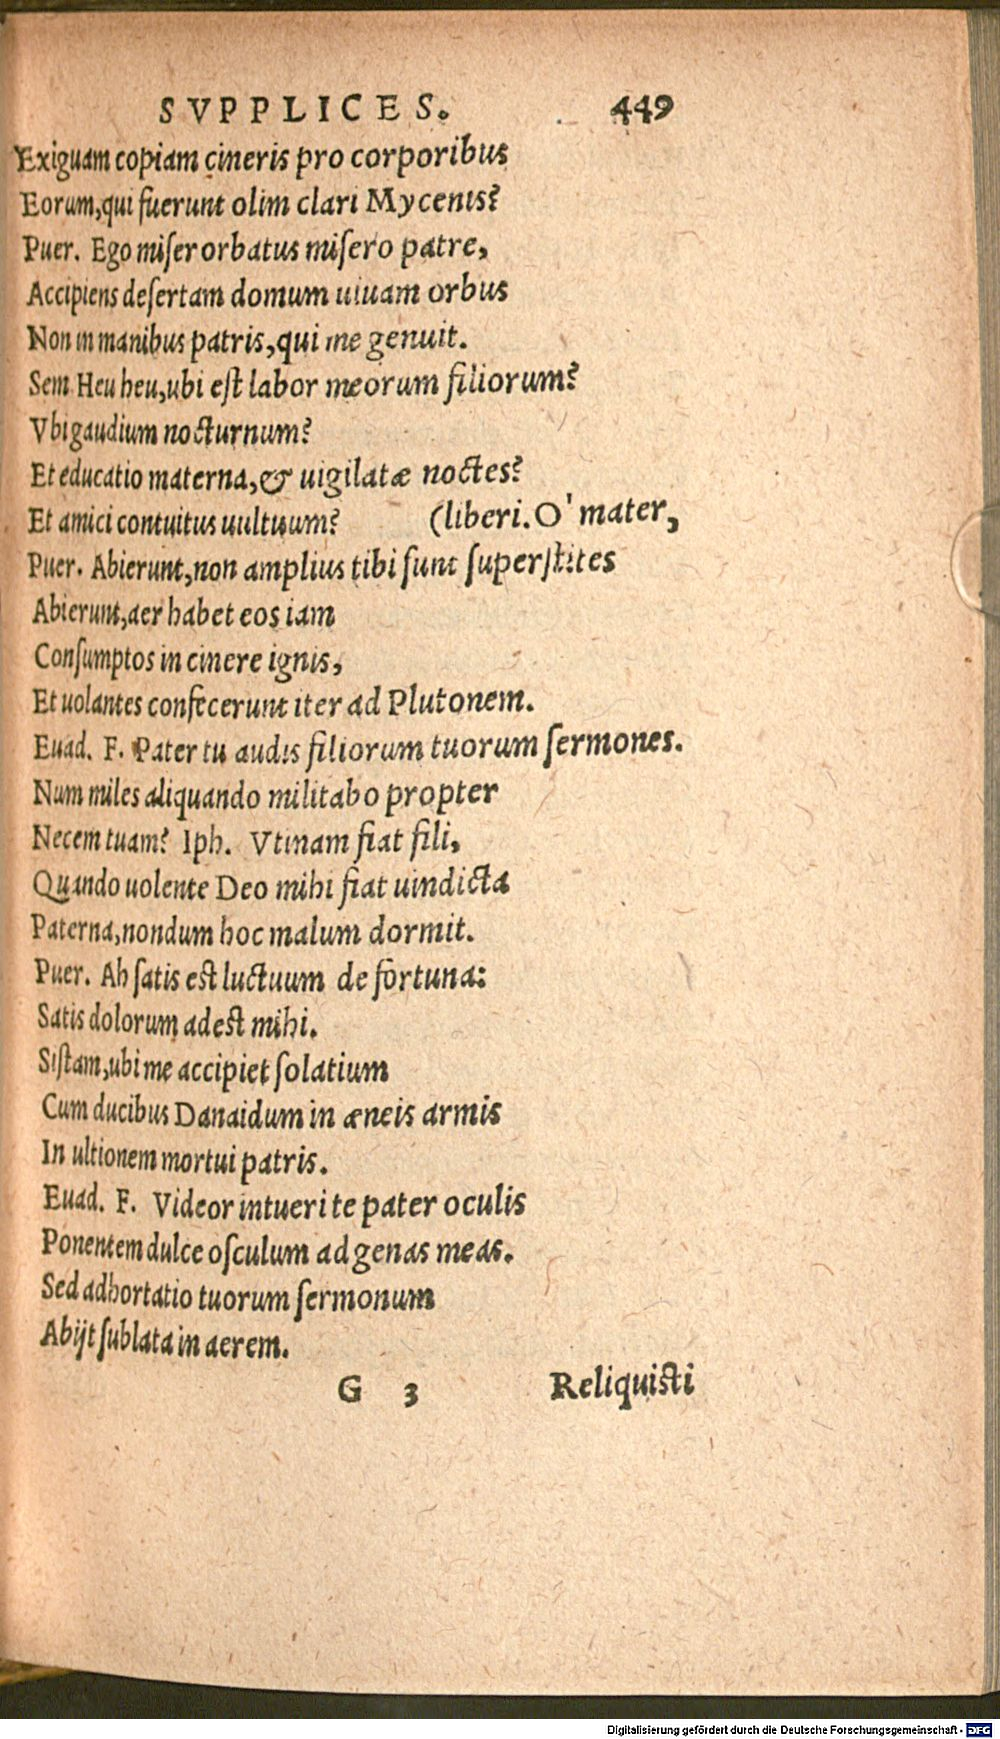 SVPPLICES. 449
Exiguam copiam cineris pro corporibus
Eorum,qui fuerunt olim clari Mycenis?
Puer. Ego miser orbatus misero patre,
Accipiens desertam domum uiuam orbus
Non in manibus patris,qui me genuit.
Sem Heu heu,ubi est labor meorum filiorum?
Vbi gaudium nocturnum?
Et educatio materna,& uigilatæ noctes?
Et amici contuitus uultuum? (liberi.O' mater,
Puer. Abierunt,non amplius tibi sunt superstites
Abierunt,aer habet eos iam
Consumptos in cinere ignis,
Et uolantes confecerunt iter ad Plutonem.
Euad. F. Pater tu audis filiorum tuorum sermones.
Num miles aliquando militabo propter
Necem tuam? Iph. Vtinam fiat fili,
Quando uolente Deo mihi fiat uindicta
Paterna,nondum hoc malum dormit.
Puer. Ah satis est luctuum de fortuna:
Satis dolorum adest mihi.
Sistam,ubi me accipiet solatium
Cum ducibus Danaidum in æneis armis
In ultionem mortui patris.
Euad. F. Videor intueri te pater oculis
Ponentem dulce osculum ad genas meas.
Sed adhortatio tuorum sermonum
Abijt sublata in aerem.
G 3 Reliquisti
Digitalisierung gefördert durch die Deutsche Forschungsgemeinschaft - DFG